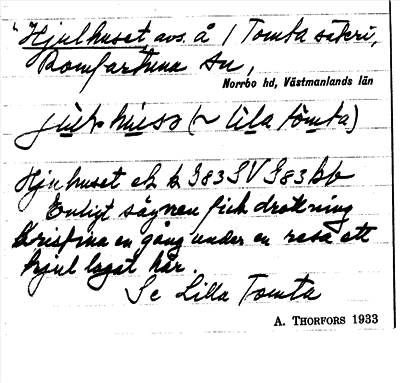 "Hjulhuset avs. å / Tomta säteri,
Romfartuna sn,
Norrbo hd, Västmanlands län
(~ lila tomta)
Hjulhuset ek k J 83 SV J 83 bb
Enligt sägnen fick drottning
Kristina en gång under en resa ett
hjul lagat här.
Se Lilla Tomta
A. THORFORS 1933